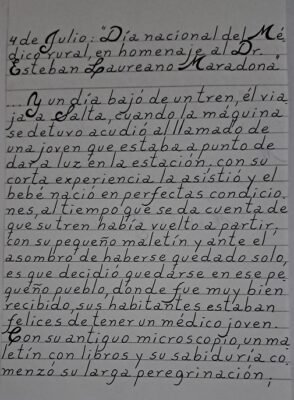 4 de Julio: "Día nacional del Mé-
dico rural, en homenaje al Dr.
Esteban Laureano Maradona"
... Y un día bajó de un tren, él via
jaba Salta, cuando la máquina
se detuvo acudió al llamado de
una joven que estaba a punto de
dar a luz en la estación, con su
corta experiencia la asistió y el
bebé nació en perfectas condicio_
nes, al tiempo que se da cuenta de
que su tren había vuelto a partir,
con su pequeño maletín y ante el
asombro de haberse quedado solo,
es que decidió quedarse en ese pe_
queño pueblo, donde fue muy bien
recibido, sus habitantes estaban
felices de tener un médico joven.
Con su antiguo microscopio, un ma_
letín con libros y su sabiduría co_
menzó su larga peregrinación,